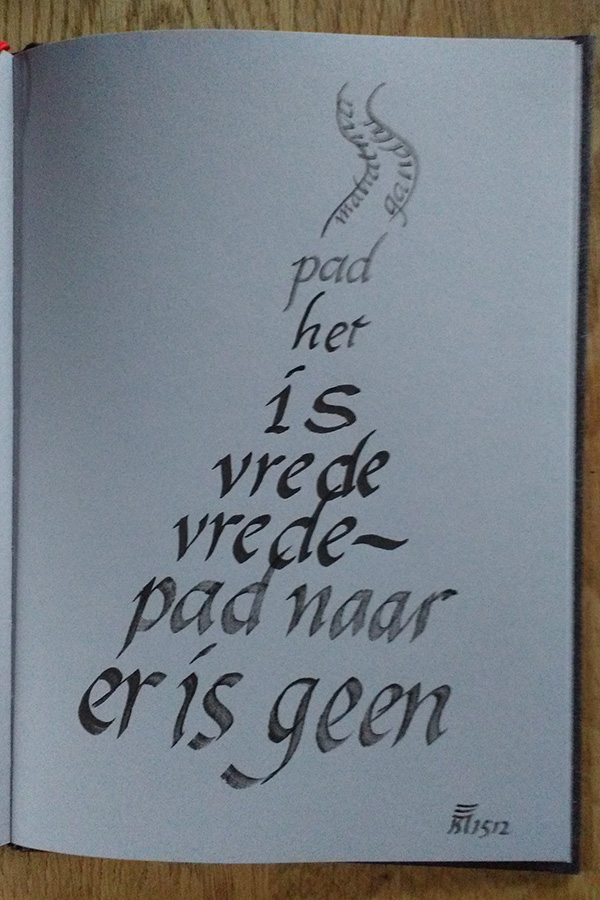 er is geen
pad naar
vrede~
vrede
is
het
pad
mahatma
gandhi
kl1512